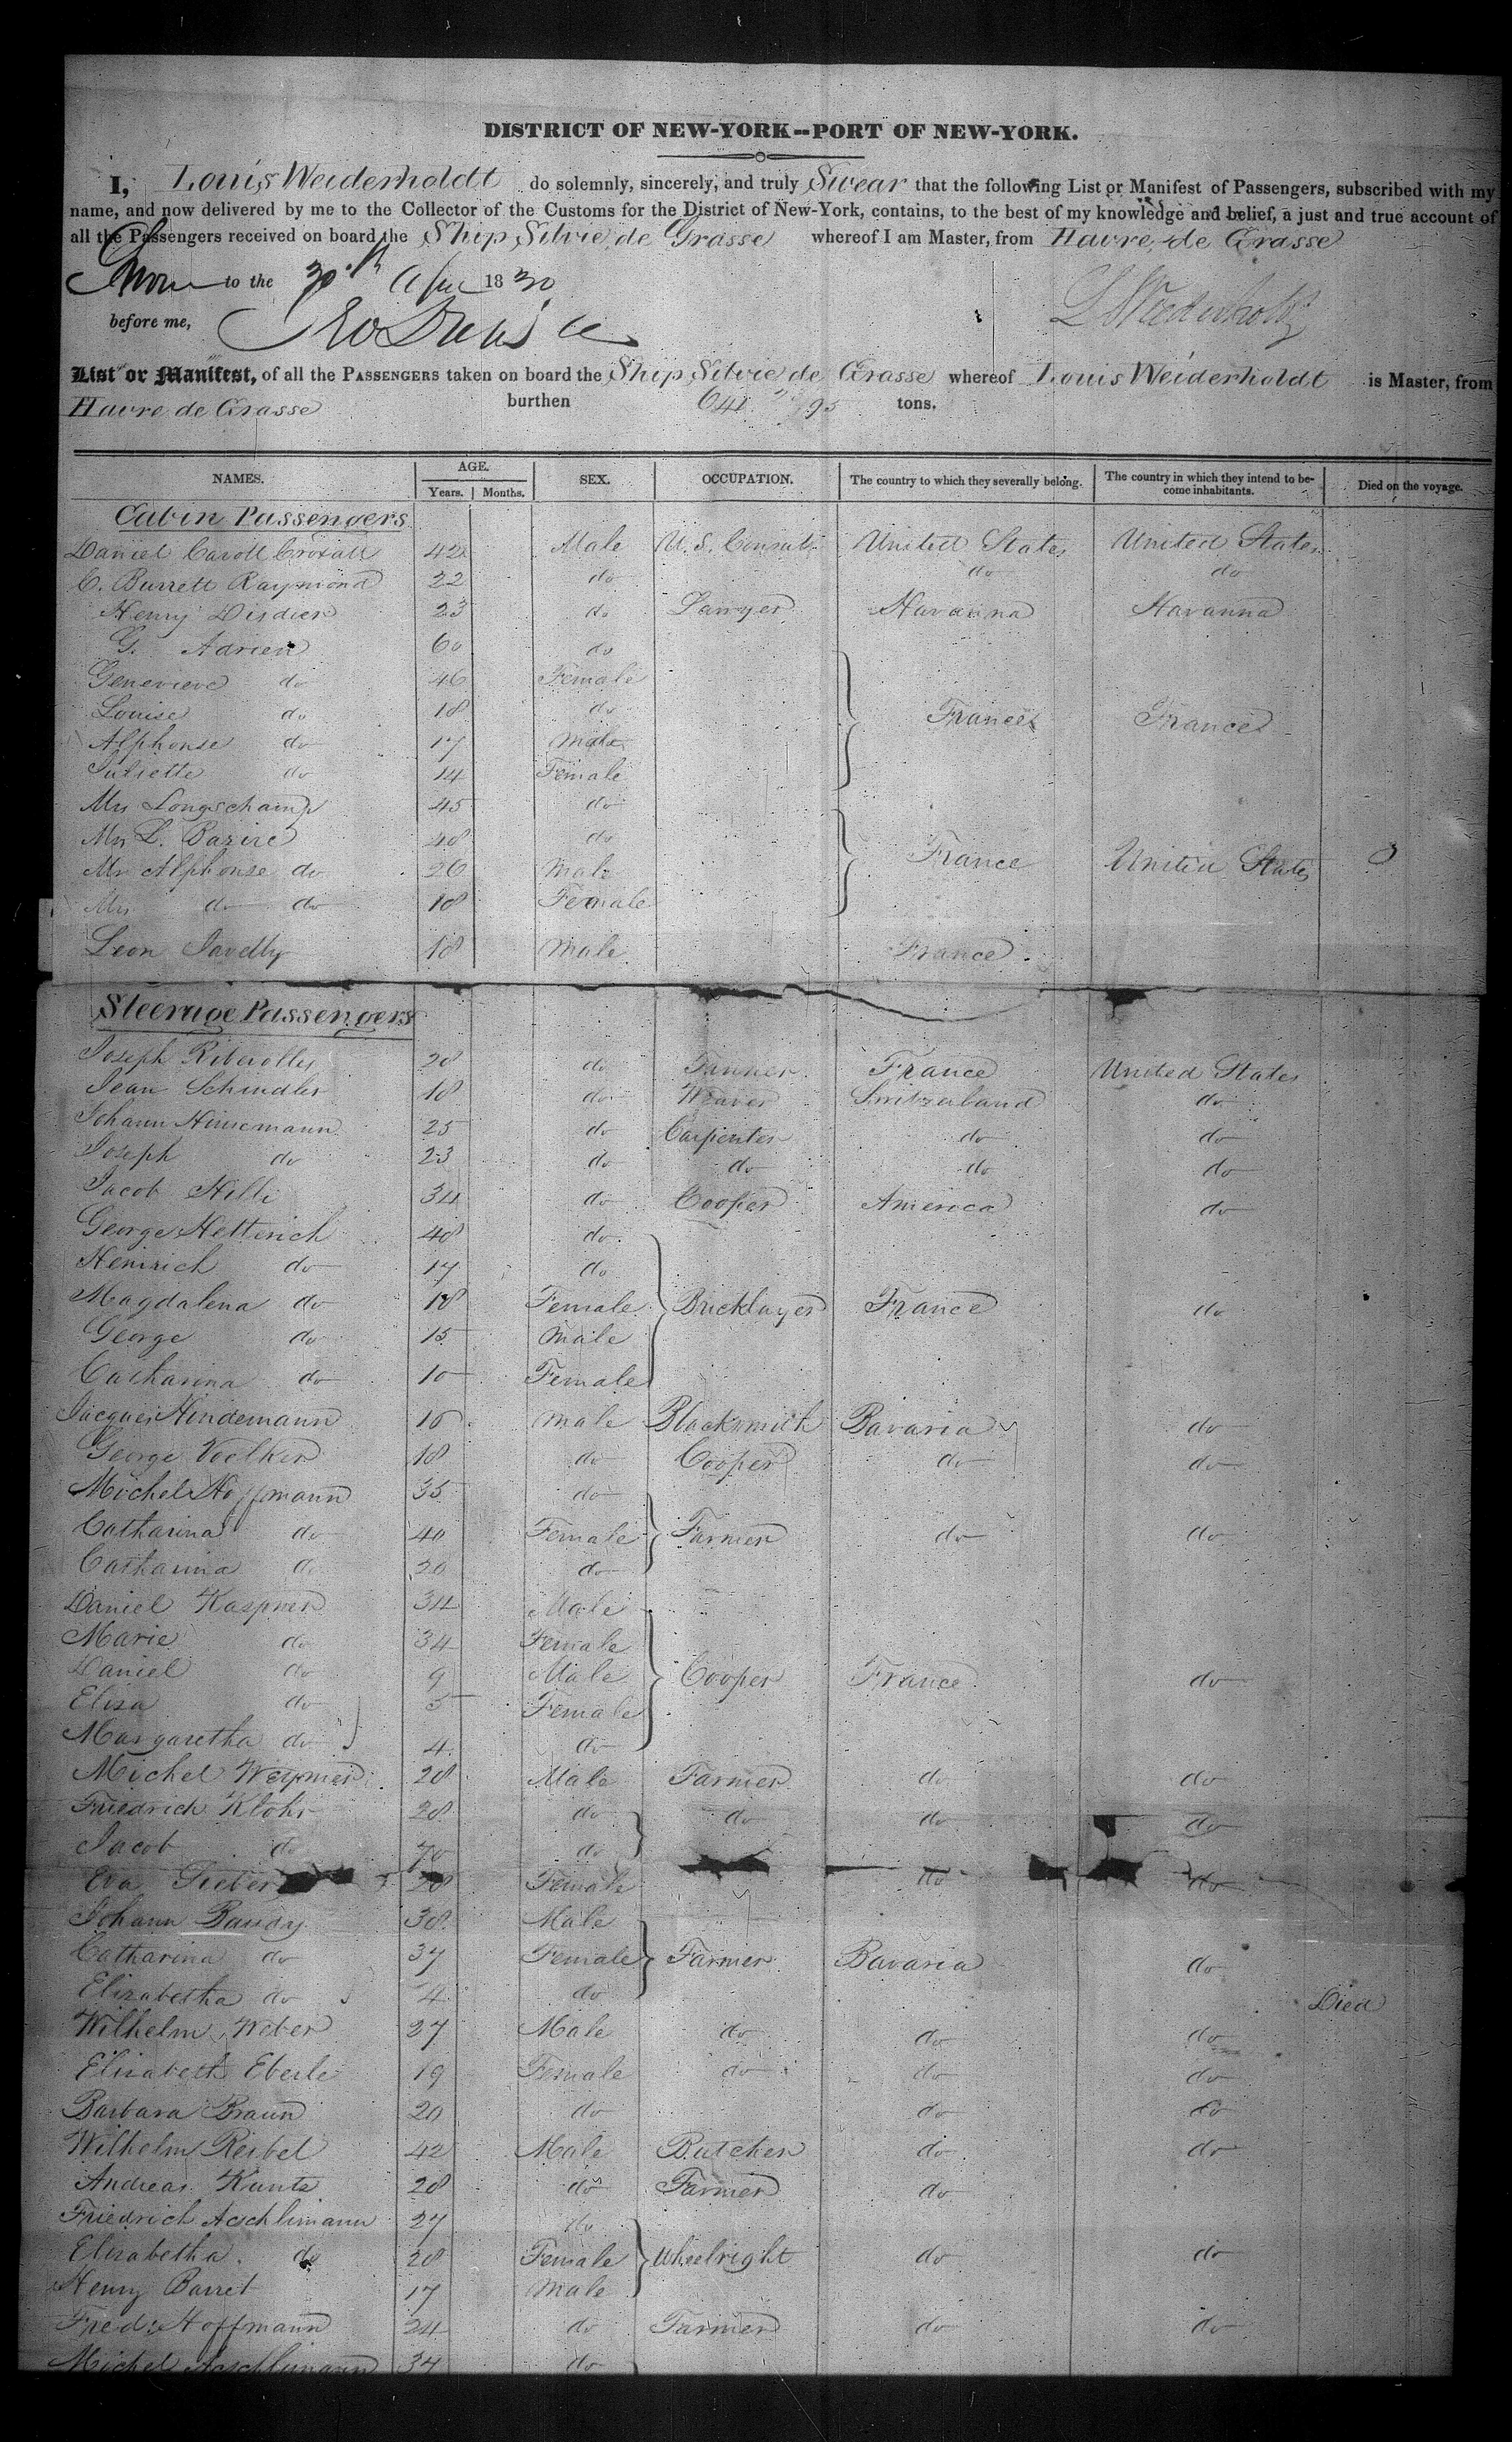 DISTRICT OF NEW-YORK--PORT OF NEW-YORK.
I, Louis Weiderholdt do solemnly, sincerely, and truly Swear that the following List or Manifest of Passengers, subscribed with my
name, and now delivered by me to the Collector of the Customs for the District of New-York, contains, to the best of my knowledge and belief, a just and true account of
all the Passengers received on board the Ship Silvie de Grasse whereof I am Master, from Havre de Grasse
Sworn to the 30th Apr 1830
before me, L Weiderholdt
List or Manifest, of all the PASSENGERS taken on board the Ship Silvie de Grasse whereof Louis Weiderholdt is Master, from
Havre de Grasse burthen 641 /95 tons.
NAMES. AGE. Years. Months. SEX. OCCUPATION. The country to which they severally belong. The country in which they intend to become inhabitants. Died on the voyage.
Cabin Passengers
Daniel Caroll Croxall 42 Male U.S. Consul United States United States
C. Burrett Raymond 22 do do do
Henry Disdier 23 do Lawyer Havanna Havanna
G. Adrien 60 do
Genevieve do 46 Female
Louise do 18 do France France
Alphonse do 17 Male
Juliette do 14 Female
Mrs Longschamp 45 do
Mrs L. Bazire 48 do
Mr Alphonse do 26 Male France United States
Mrs do do 18 Female
Leon Javelly 18 Male France
Steerage Passengers
Joseph 28 do Tanner France United States
Jean Schindler 18 do Weaver Switzerland do
Johann 25 do Carpenter do do
Joseph do 23 do do do do
Jacob Hilli 34 do Cooper America do
George Hetterich 48 do
Heinrich do 17 do
Magdalena do 18 Female Bricklayer France do
George do 15 Male
Catharina do 10 Female
Jacques Hindemann 16 male Blacksmith Bavaria do
George Voelker 18 do Cooper do do
Michel Hoffmann 35 do
Catharina do 40 Female Farmer do do
Catharina do 20 do
Daniel Kaspner 34 Male
Marie do 34 Female
Daniel do 9 Male Cooper France do
Elisa do 5 Female
Margaretha do 4 do
Michel Weymer 28 Male Farmer do do
Friedrich Klohr 28 do do do do
Jacob do 70 do
Eva 28 Female do do
Johann Bandy 38 Male
Catharina do 37 Female Farmer Bavaria do
Elizabetha do 4 do Died
Wilhelm Weber 27 Male do do do
Elisabeth Eberle 19 Female do do do
Barbara Braun 20 do do do
Wilhelm Reibel 42 Male Butcher do do
Andreas Kuntz 28 do Farmer do
Friedrich Aeschlimann 27 do
Elizabetha do 28 Female Wheelright do do
Henry Barret 17 Male
Fredk Hoffmann 24 do Farmer do do
Michel Aeschlimann 34 do